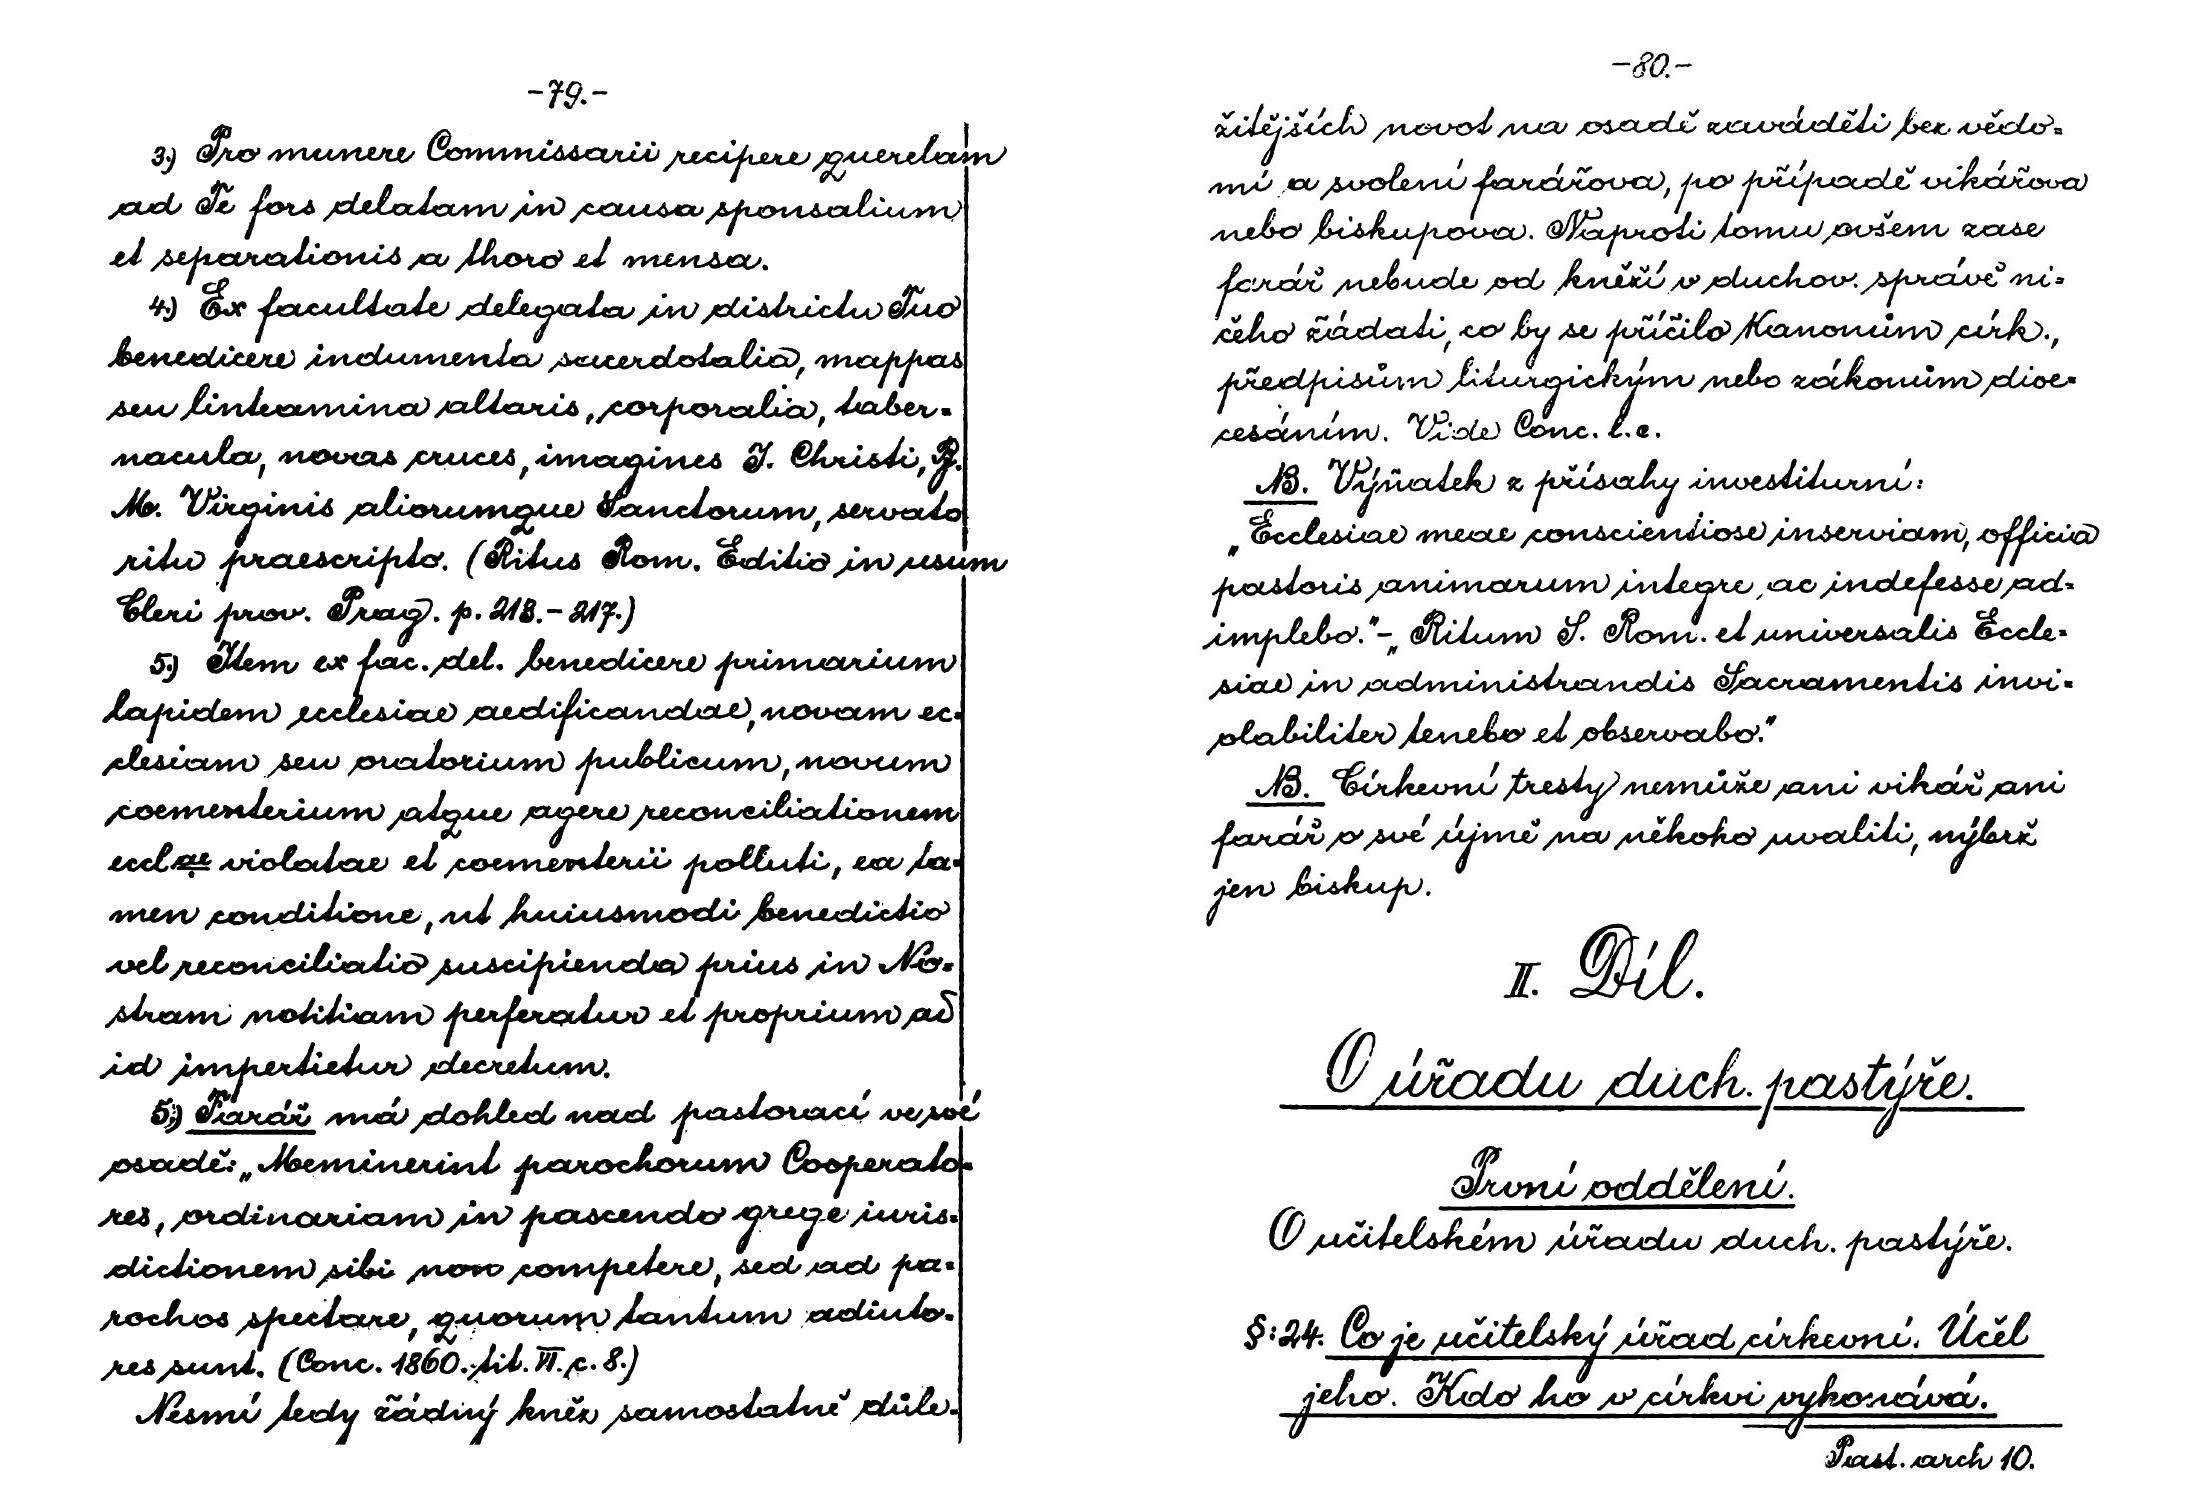 -79.-
3.) Pro munere Commissarii recipere querelam
ad Te fors delatam in causa sponsalium
et separationis a thoro et mensa.
4.) Ex facultate delegata in districtu Tuo
benedicere indumenta sacerdotalia, mappas
seu linteamina altaris, corporalia, taber=
nacula, novas cruces, imagines J. Christi, B.
M. Virginis aliorumque Sanctorum, servato
ritu praescripto. (Ritus Rom. Editio in usum
Cleri prov. Prag. p. 213.-217.)
5.) Item ex fac. del. benedicere primarium
lapidem ecclesiae aedificandae, novam ec=
clesiam seu oratorium publicum, novum
coementerium atque agere reconciliationem
eccl.ae violatae et coementerii polluti, ea ta=
men conditione, ut huiusmodi benedictio
vel reconciliatio suscipienda prius in No=
stram notitiam perferatur et proprium ad
id impertietur decretum.
5.) Farář má dohled nad pastorací ve své
osadě: „Meminerint parochorum Cooperato=
res, ordinariam in pascendo grege iuris=
dictionem sibi non competere, sed ad pa=
rochos spectare, quorum tantum adiuto=
res sunt. (Conc. 1860. tit. VI. c. 8.)
Nesmí tedy žádný kněz samostatně důle=
-80.-
žitějších novot na osadě zaváděti bez vědo=
mí a svolení farářova, po případě vikářova
nebo biskupova. Naproti tomu ovšem zase
farář nebude od kněží v duchov. správě ni=
čeho žádati, co by se příčilo Kanonům círk.,
předpisům liturgickým nebo zákonům dioe=
cesáním. Vide Conc. l.c.
NB. Výňatek z přísahy investiturní:
„Ecclesiae meae conscientiose inserviam, officia
pastoris animarum integre ac indefesse ad=
implebo."-„Ritum S. Rom. et universalis Eccle=
siae in administrandis Sacramentis invi=
olabiliter tenebo et observabo."
NB. Církevní tresty nemůže ani vikář ani
farář o své újmě na někoho uvaliti, nýbrž
jen biskup.
II. Díl.
O úřadu duch. pastýře.
První oddělení.
O učitelském úřadu duch. pastýře.
§:24. Co je učitelský úřad církevní. Účel
jeho. Kdo ho v církvi vykonává.
Past. arch 10.